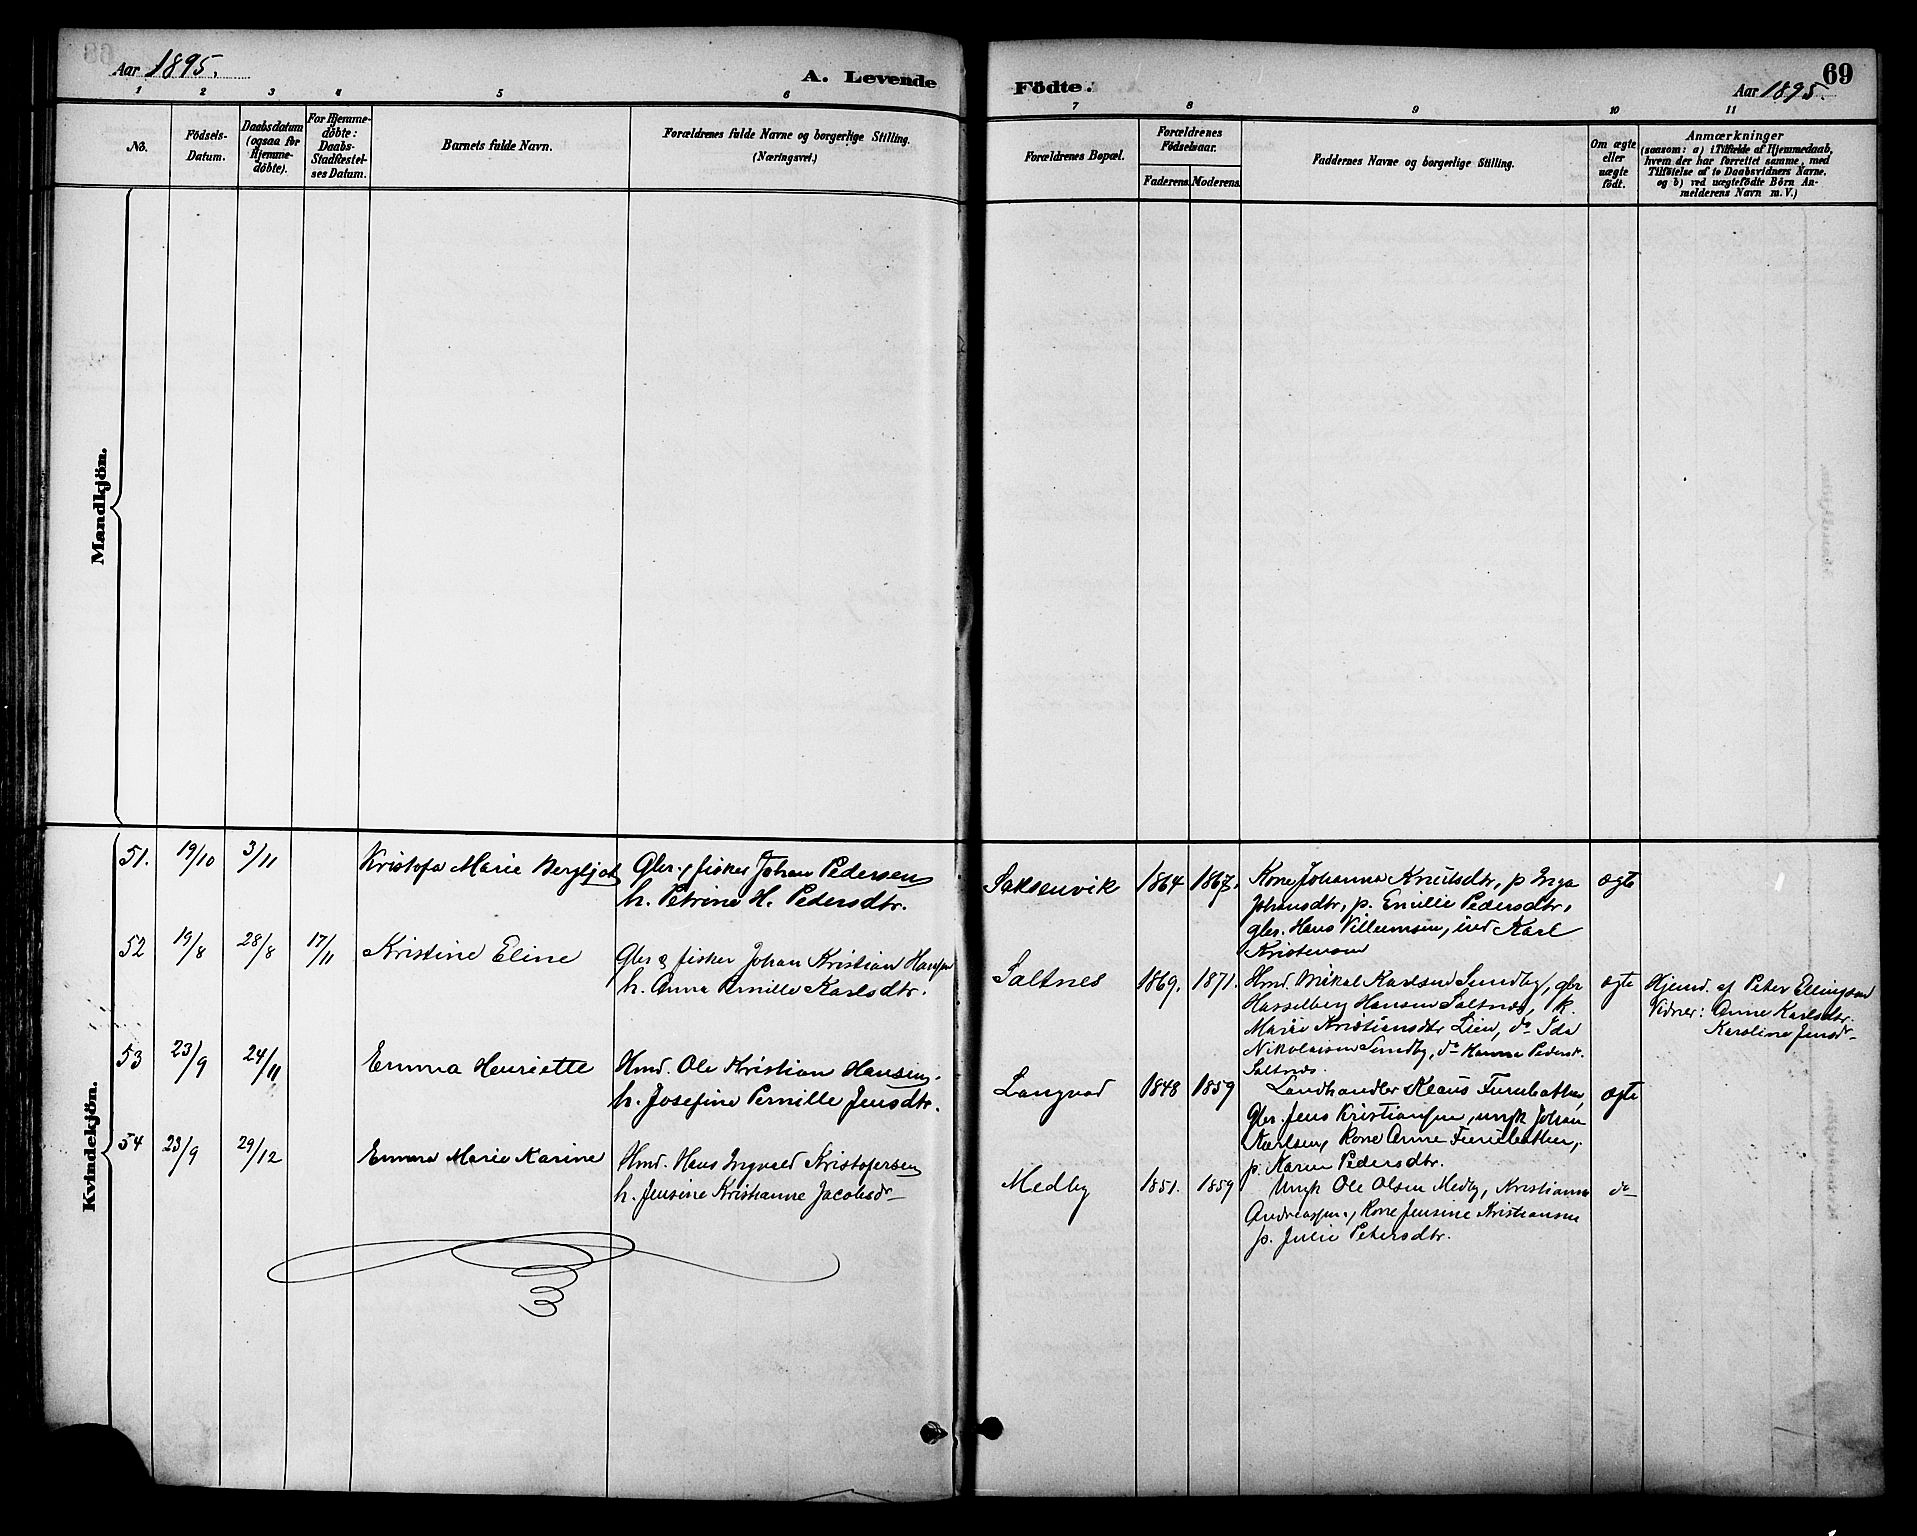 Aar 1895.
A. Levende
Födte.
69
Aar 1895.
1 2 3 4 5 6 7 8 9 10 11
No.
Födsels-
Datum.
Daabsdatum
(ogsaa for
Hjemme-
döbte).
For Hjemme-
döbte:
Daabs-
Stadfæstel-
ses Datum.
Barnets fulde Navn.
Forældrenes fulde Navne og borgerlige Stilling.
(Næringsvei.)
Forældrenes Bopæl.
Forældrenes
Födselsaar.
Faderens. Moderens.
Faddernes Navne og borgerlige Stilling.
Om ægte
eller
uægte
født.
Anmærkninger
(saasom: a) i Tilfælde af Hjemmedaab,
hvem der har forrettet samme, med
Tilföielse af to Daabsvidners Navne,
og b) ved uægtefödte Börn An-
melderens Navn m. V.)
Mandkjön.
Kvindekjön.
51. 19/10 3/11 Kristofa Marie Bergljot
Gbr. & fisker Johan Pedersen
h. Petrine H. Pedersdtr.
Saksenvik 1864 1867.
Kone Johanna Knutsdtr, p Inga
Johansdtr, p. Emilie Pedersdtr,
gbr. Hans Villumsen, ind Karl
Kristensen
ægte
52 19/8 28/8 17/11 Kristine Eline
Gbr & fisker Johan Kristian Hansen
h. Anna Pernille Karlsdtr.
Saltnes 1869. 1871.
Hmd. Mikal Karlsen Sundby, gbr
Hasselberg Hansen Saltnes, k.
Marie Kristiansdtr Lien, do Ida
Nikolaisen Sundby, do Hanna Peders
Saltnes.
ægte
Hjemd. af Peter Ellingsen
Vidner: Anne Karlsdtr.
Karoline Jensd
53 23/9 24/11 Emma Henriette
Hmd. Ole Kristian Hansen
h. Josefine Pernille Jensdtr.
Langvad 1848 1859
Landhandler Klaus
Gbr. Jens Kristiansen, ungk Johan
Karlsen, Kone Anne
p. Karen Pedersdtr.
ægte
54 23/9 29/12 Emma Marie Karine
Hmd. Hans Ingvald Kristofersen
h. Jensine Kristianne Jacobsdr
Medby 1851. 1859
Ungk Ole Olsen Medby, Kristianne
Andreassen, Kone Jensine Kristiansen
p. Julie Petersdtr.
do